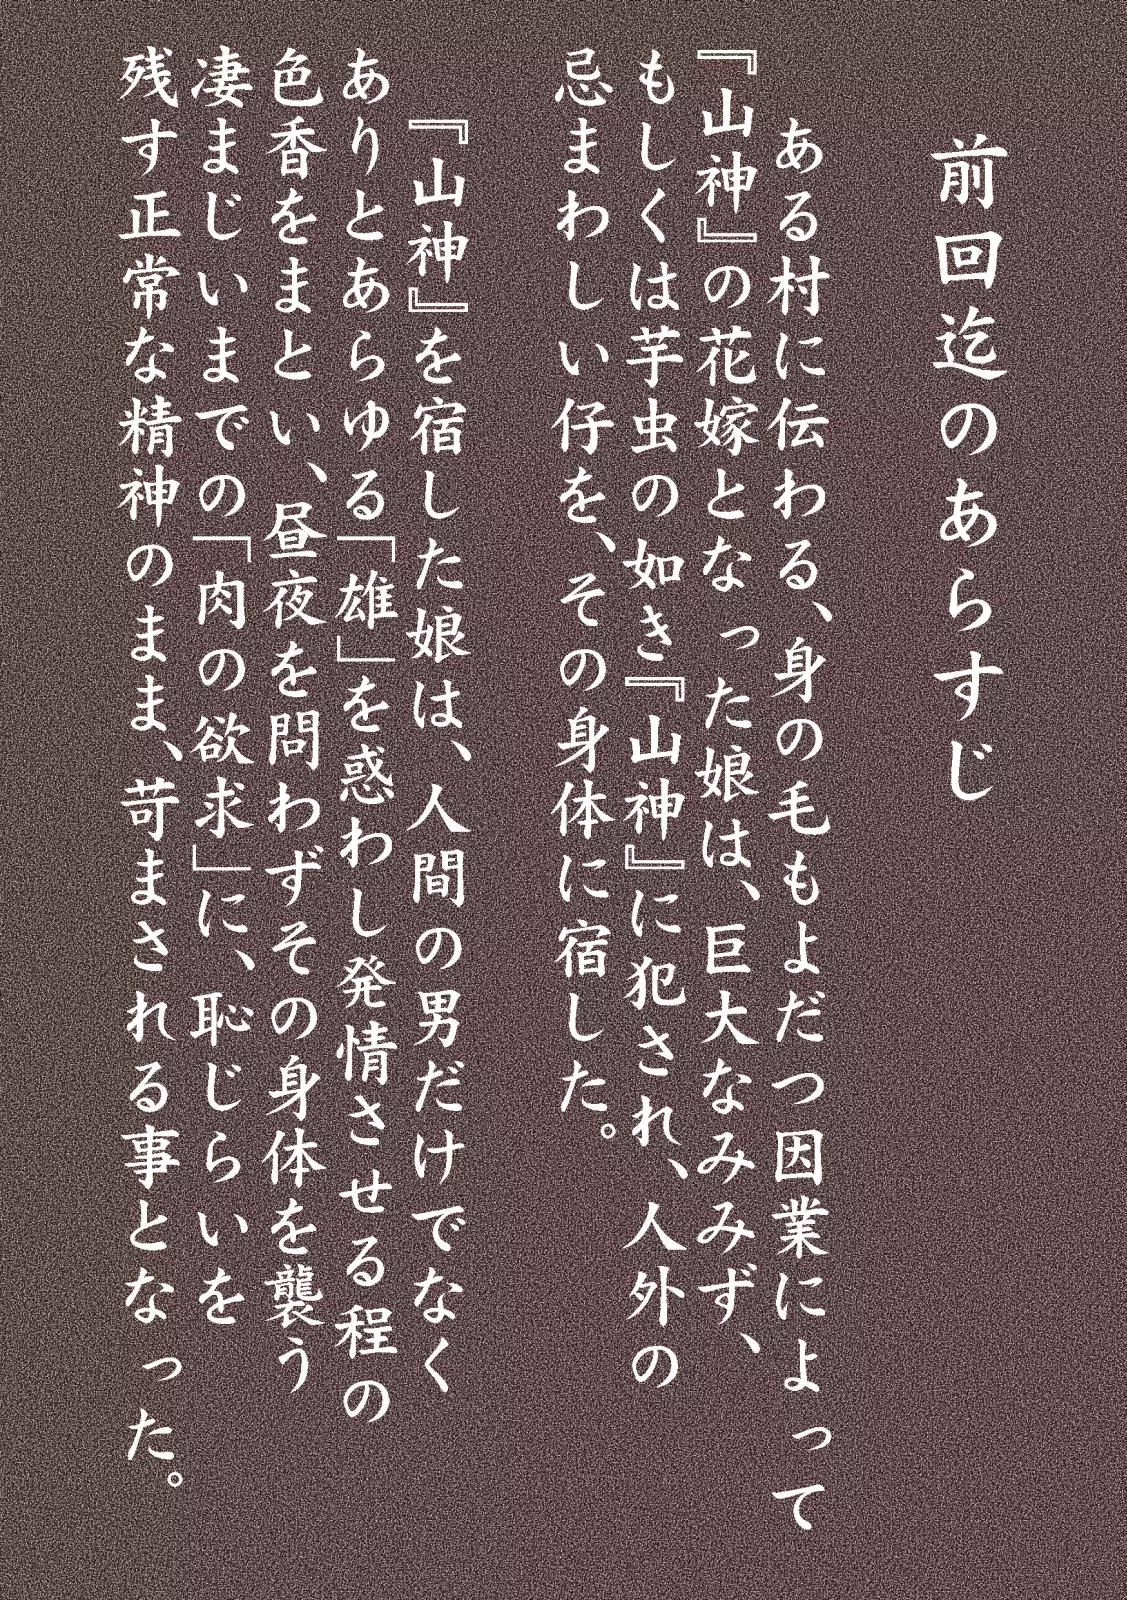 前回迄のあらすじ
ある村に伝わる、身の毛もよだつ因業によって
『山神』の花嫁となった娘は、巨大なみみず、
もしくは芋虫の如き『山神』に犯され、人外の
忌まわしい仔を、その身体に宿した。
『山神』を宿した娘は、人間の男だけでなく
ありとあらゆる「雄」を惑わし発情させる程の
色香をまとい、昼夜を問わずその身体を襲う
凄まじいまでの「肉の欲求」に、恥じらいを
残す正常な精神のまま、苛まされる事となった。